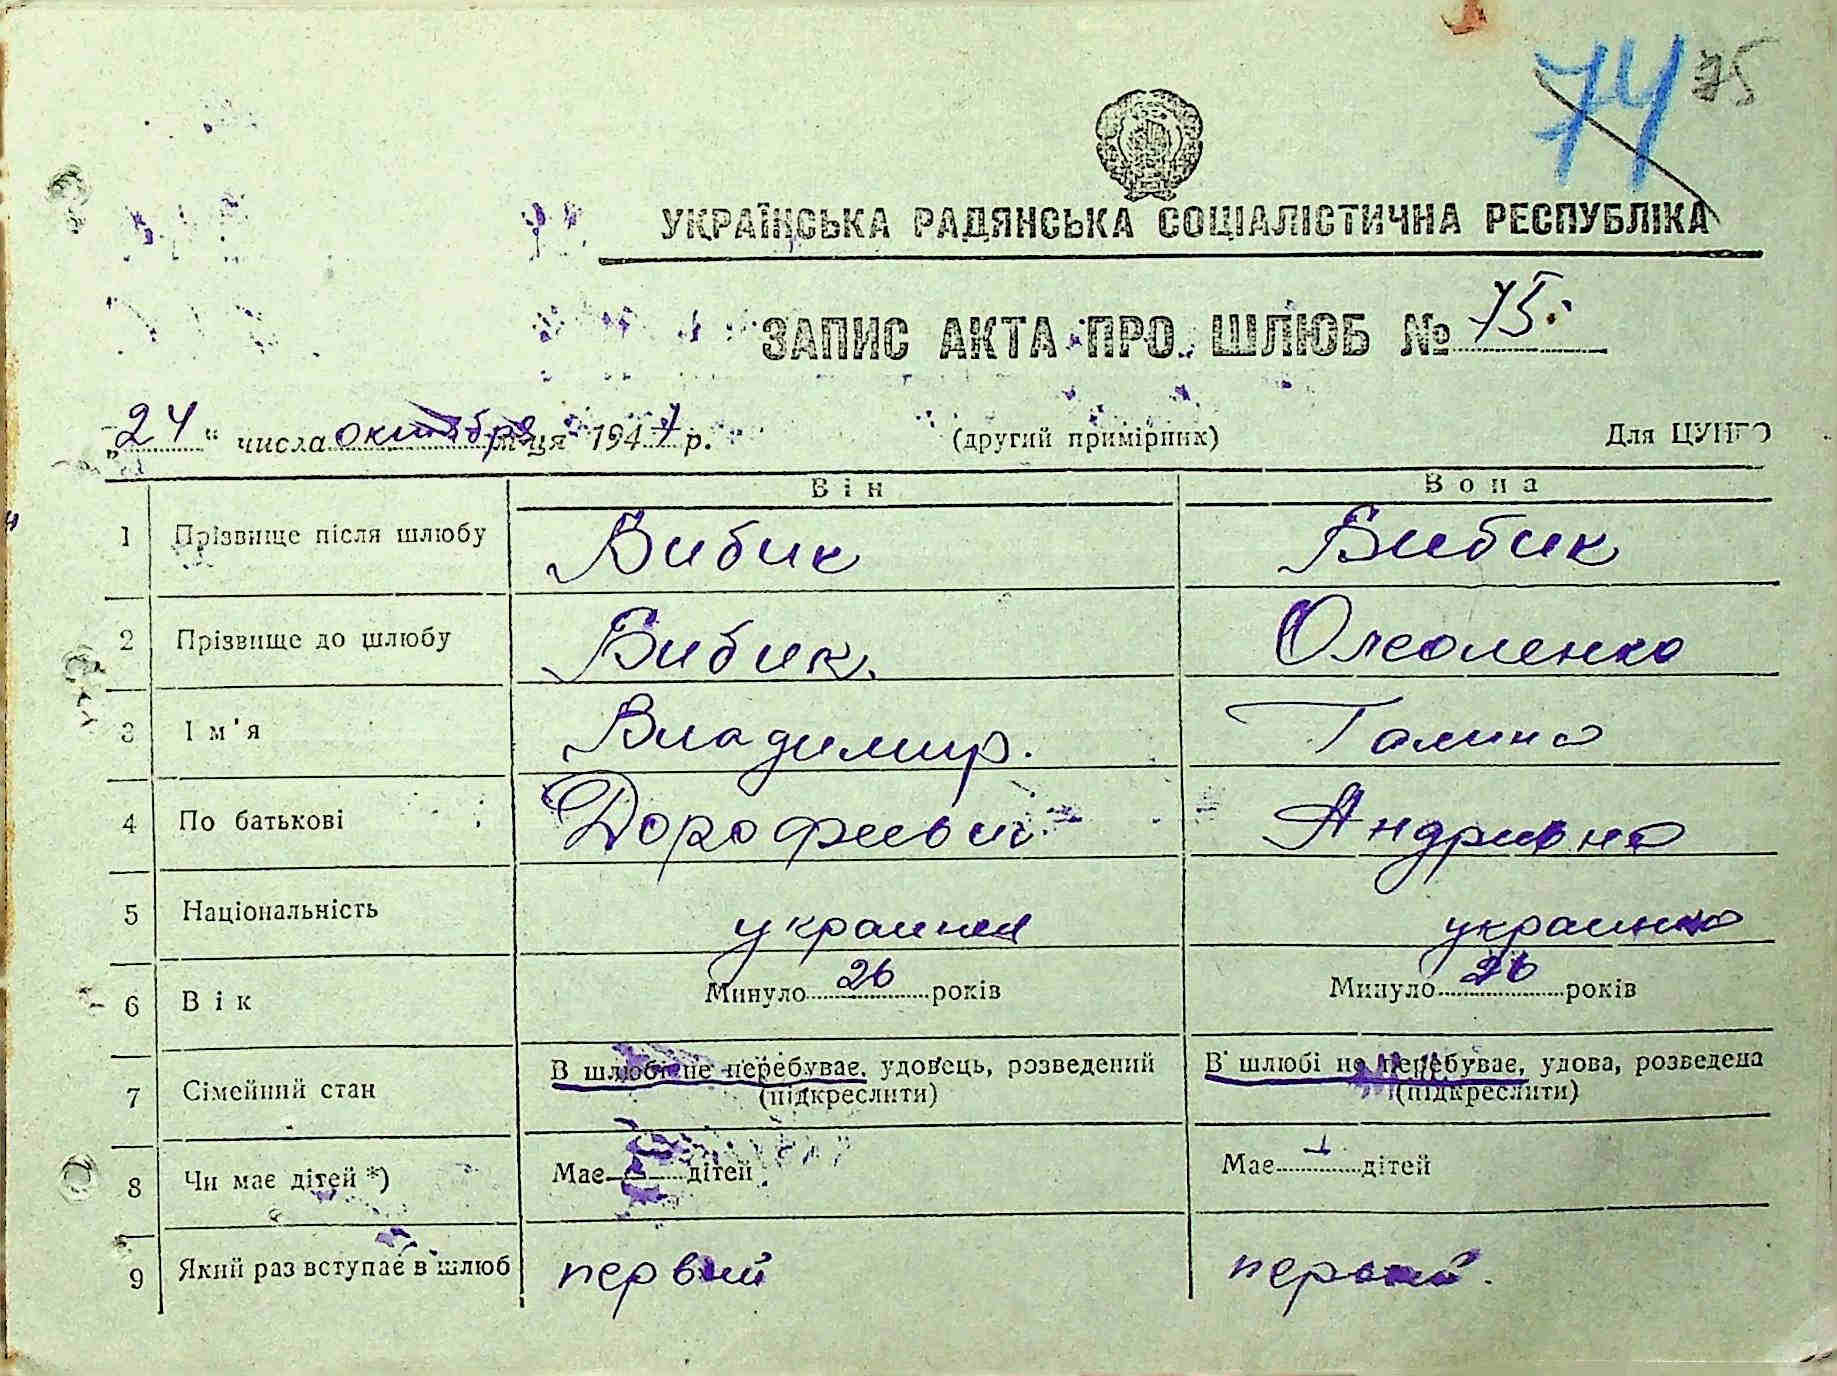 74 75
УКРАЇНСЬКА РАДЯНСЬКА СОЦІАЛІСТИЧНА РЕСПУБЛІКА
ЗАПИС АКТА ПРО ШЛЮБ № 75.
„24“ числа октября м-ця 1947 р. (другий примірник) Для ЦУНГО
Він Вона
1 Прізвище після шлюбу Бибик Бибик
2 Прізвище до шлюбу Бибик.
3 Ім'я Владимир. Галина
4 По батькові Дорофиевич Андриевна
5 Національність украинец украинка
6 Вік Минуло 26 років Минуло 26 років
7 Сімейний стан В шлюбі не перебуває, удовець, розведений В шлюбі не перебуває, удова, розведена
(підкреслити) (підкреслити)
8 Чи має дітей *) Має 1 дітей Має 1 дітей
9 Який раз вступає в шлюб первый первый.